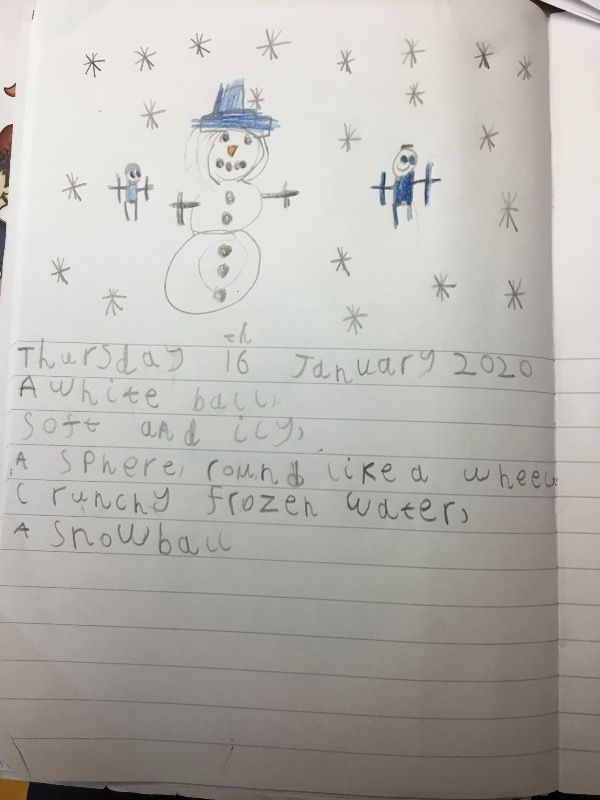 Thursday 16th January 2020
A white ball,
Soft and icy,
A sphere, round like a wheel
Crunchy frozen water,
A snowball